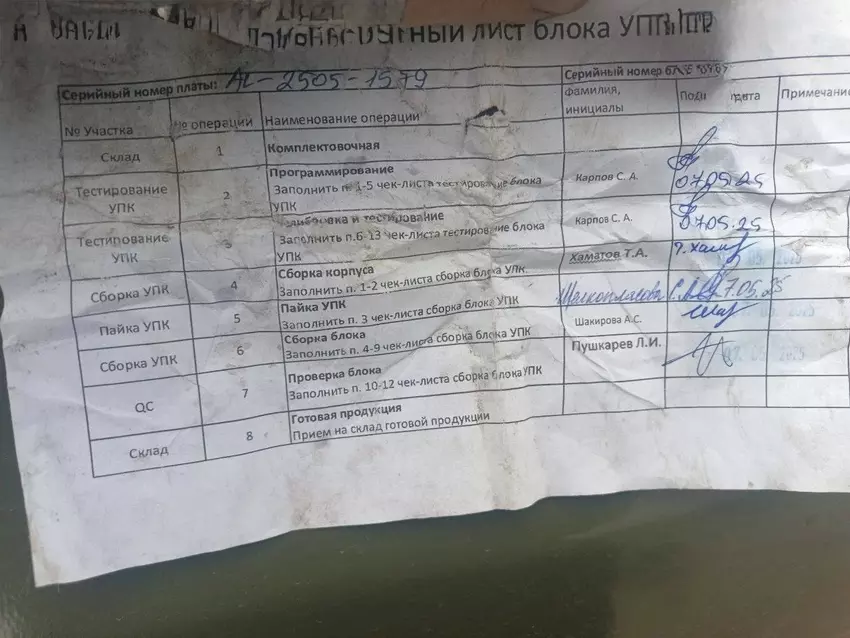 лист блока
Серийный номер платы: AL-2505-1579
Серийный номер
№ Участка № операции Наименование операции фамилия, инициалы дата Примечание
Склад 1 Комплектовочная
Тестирование УПК 2 Программирование
Заполнить п. 1-5 чек-листа тестирование блока УПК
Карпов С. А. 07.05.25
Тестирование УПК 3 и тестирование
Заполнить п.6-13 чек-листа тестирование блока УПК
Карпов С. А. 07.05.25
Сборка УПК 4 Сборка корпуса
Заполнить п. 1-2 чек-листа сборка блока УПК.
Хаматов Т.А.
Пайка УПК 5 Пайка УПК
Заполнить п. 3 чек-листа сборка блока УПК
7.05.25
Сборка УПК 6 Сборка блока
Заполнить п. 4-9 чек-листа сборка блока УПК
Шакирова А.С.
QC 7 Проверка блока
Заполнить п. 10-12 чек-листа сборка блока УПК
Пушкарев Л.И.
Склад 8 Готовая продукция
Прием на склад готовой продукции